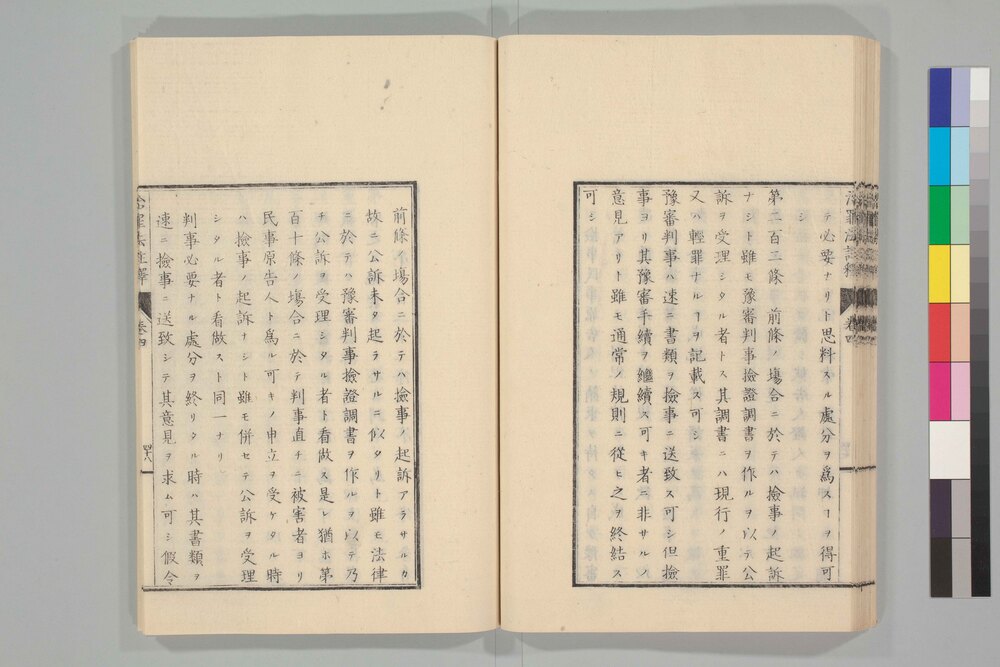 テ必要ナリト思料スル處分ヲ爲スヿヲ得可
シ
第二百三條　前條ノ塲合ニ於テハ撿事ノ起訴
ナシト雖モ豫審判事撿證調書ヲ作ルヲ以テ公
訴ヲ受理シタル者トス其調書ニハ現行ノ重罪
又ハ輕罪ナルヿヲ記載ス可シ
豫審判事ハ速ニ書類ヲ撿事ニ送致ス可シ但撿
事ヨリ其豫審手續ヲ繼續ス可キ者ニ非サルノ
意見アリト雖モ通常ノ規則ニ從ヒ之ヲ終結ス
可シ
前條ノ塲合ニ於テハ撿事ノ起訴アラサルカ
故ニ公訴未タ起ラサルニ似タリト雖モ法律
ニ於テハ豫審判事撿證調書ヲ作ルヲ以テ乃
チ公訴ヲ受理シタル者ト看做ス是レ猶ホ第
百十條ノ塲合ニ於テ判事直チニ被害者ヨリ
民事原告人ト爲ル可キノ申立ヲ受ケタル時
ハ撿事ノ起訴ナシト雖モ併セテ公訴ヲ受理
シタル者ト看做スト同一ナリ
判事必要ナル處分ヲ終リタル時ハ其書類ヲ
速ニ撿事ニ送致シテ其意見ヲ求ム可シ假令
治罪法註釋　卷四